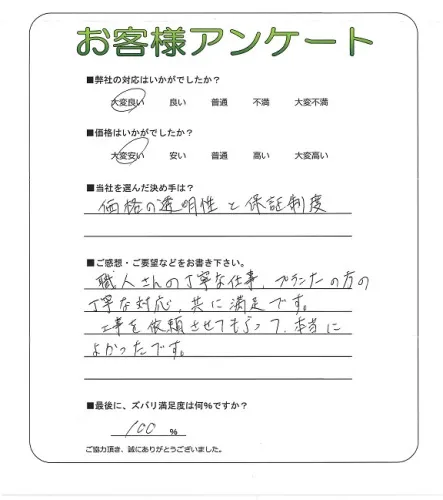 お客様アンケート
■弊社の対応はいかがでしたか？
大変良い 良い 普通 不満 大変不満
■価格はいかがでしたか？
大変安い 安い 普通 高い 大変高い
■当社を選んだ決め手は？
価格の透明性と保証制度
■ご感想・ご要望などをお書き下さい。
職人さんの丁寧な仕事、プランナーの方の
丁寧な対応、共に満足です。
工事を依頼させてもらって、本当に
よかったです。
■最後に、ズバリ満足度は何％ですか？
100 ％
ご協力頂き、誠にありがとうございました。